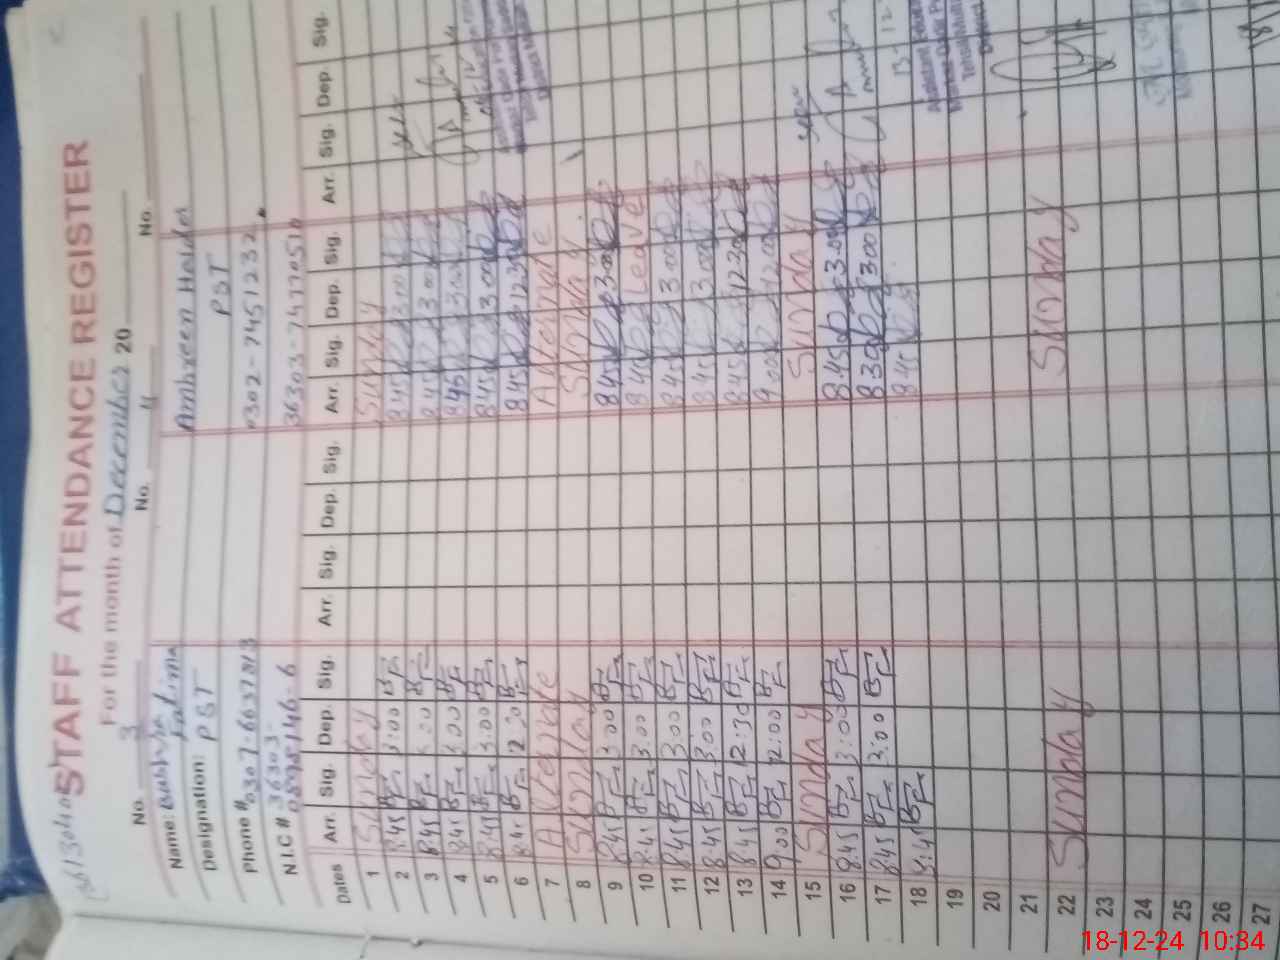 STAFF ATTENDANCE REGISTER
For the month of December 20
No. 3 No. 4 No.
Name: Bushra Fatima Ambreen Haider
Designation: PST PST
Phone # 0307-6657813 0302-7451232
N.I.C # 36303- 36303-7477051
Dates Arr. Sig. Dep. Sig. Arr. Sig. Dep. Sig. Arr. Sig. Dep. Sig. Arr. Sig. Dep. Sig.
1 Sunday Sunday
2 8:45 BF 3:00 BF 8:45 3:00
3 8:45 BF 3:00 BF 8:45 3:00
4 8:45 BF 3:00 BF 8:45 3:00
5 8:45 BF 3:00 BF 8:45 3:00
6 8:45 BF 12:30 BF 8:45 12:30
7 Alternate Alternate
8 Sunday Sunday
9 8:45 BF 3:00 BF 8:45 3:00
10 8:45 BF 3:00 BF 8:45 Leave
11 8:45 BF 3:00 BF 8:45 3:00
12 8:45 BF 3:00 BF 8:45 3:00
13 8:45 BF 12:30 BF 8:45 12:30
14 9:00 BF 12:00 BF 9:00 12:00
15 Sunday Sunday
16 8:45 BF 3:00 BF 8:45 3:00
17 8:45 BF 3:00 BF 8:30 3:00
18 8:45 BF 8:45
19
20
21
22 Sunday Sunday
23
24
25
26
27
18-12-24 10:34